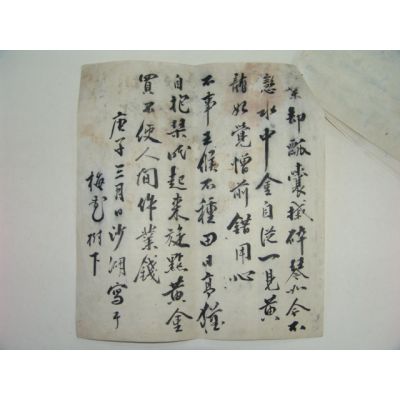 棄却瓢囊摵碎琴如今不
戀水中金自從一見黃
龍始覺憎前錯用心
不事王侯不種田日高猶
自抱琴眠起來旋點黃金
買不使人間作業錢
庚子三月日沙湖寫于
梅花樹下